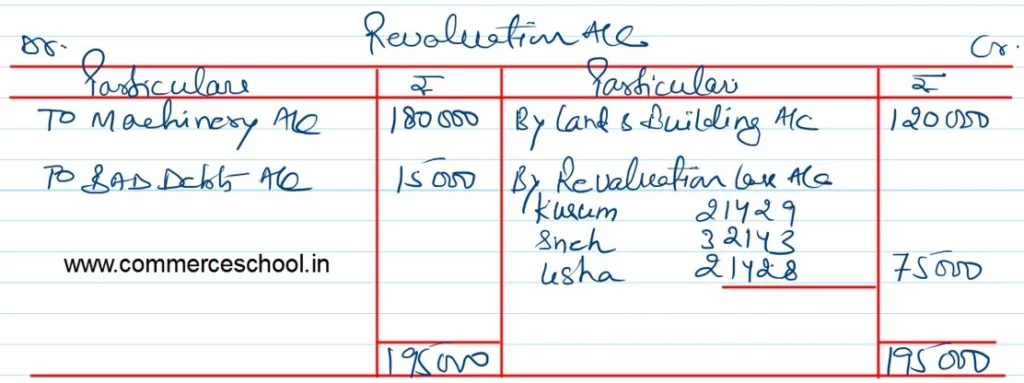 Revaluation A/c
Dr. Cr.
Particulars ₹ Particulars ₹
To Machinery A/c 180000 By Land & Building A/c 120000
To BAD Debts A/c 15000 By Revaluation Loss A/c
Kusum 21429
Sneh 32143
www.commerceschool.in Usha 21428 75000
195000 195000